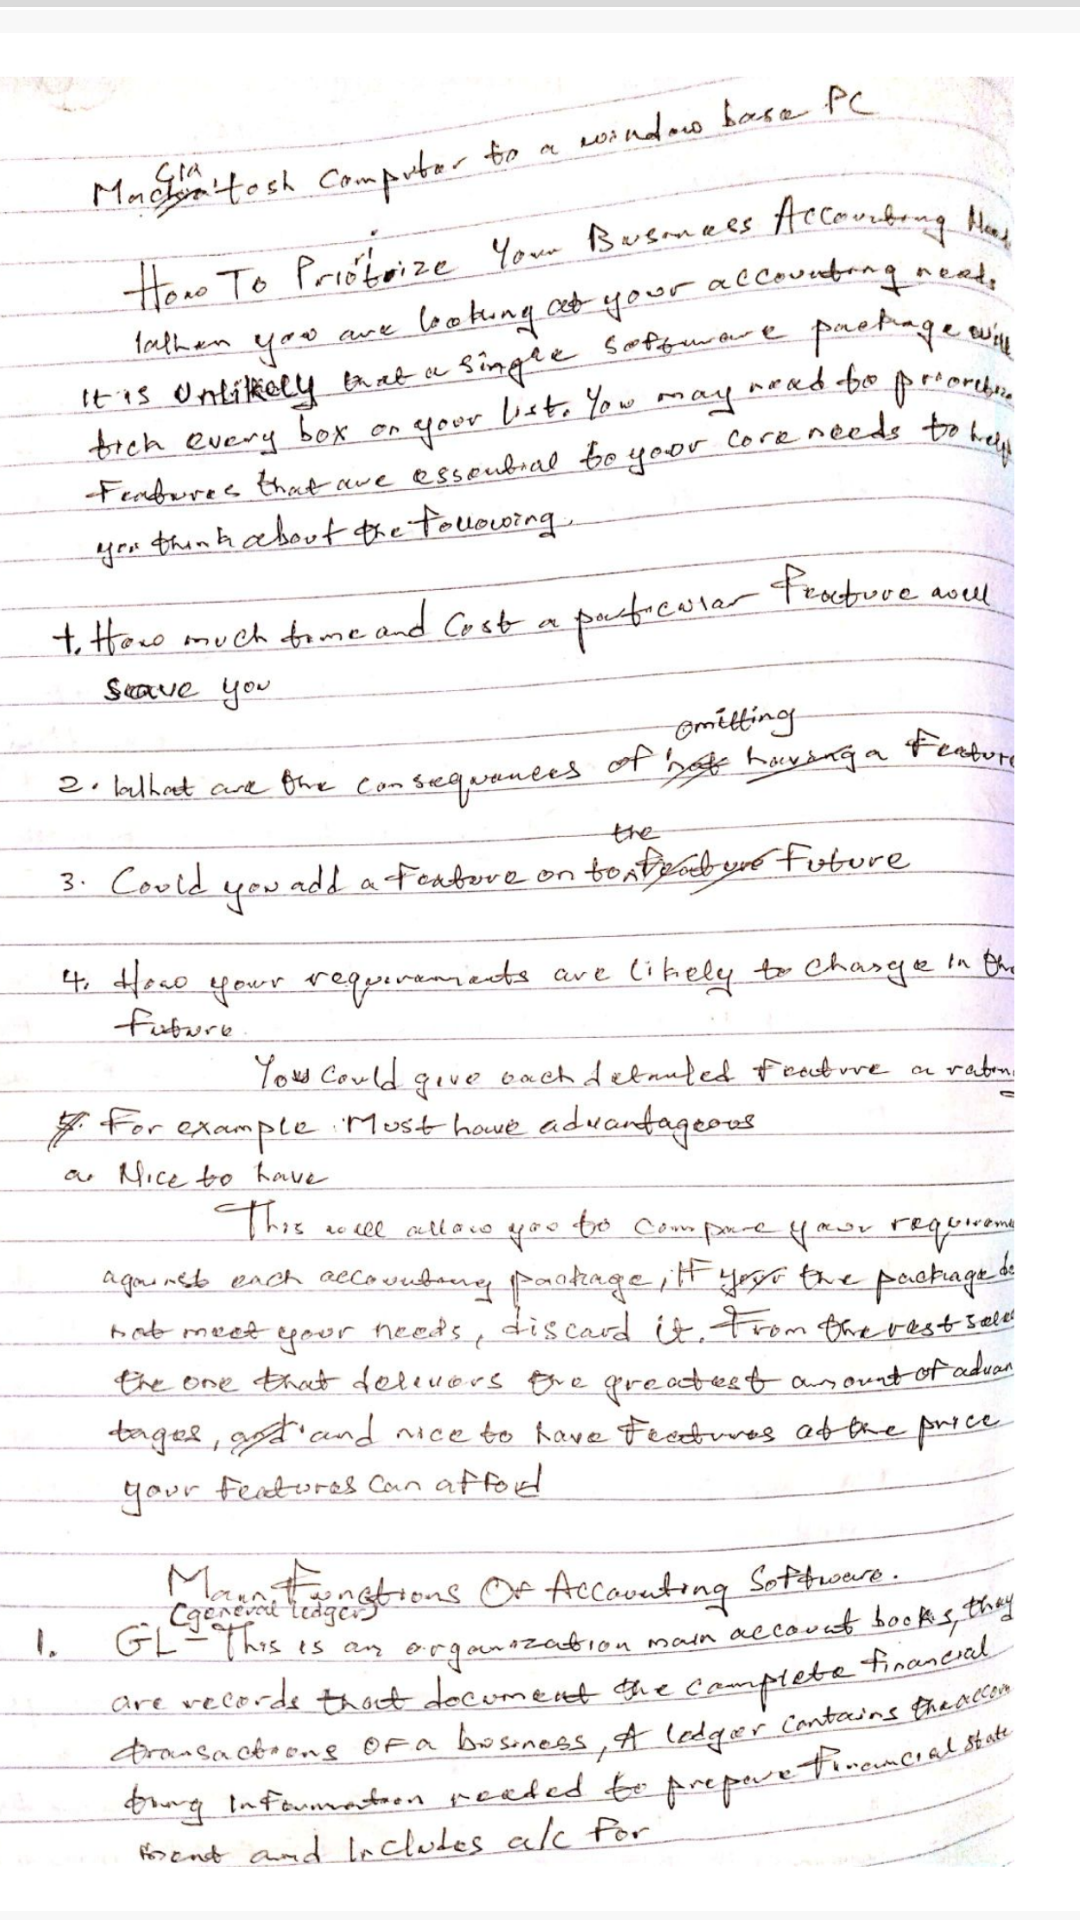 Macintosh Computer to a window base PC
How To Prioritize Your Business Accounting Need
When you are looking at your accounting needs
It is Unlikely that a single software package will
tick every box on your list. You may need to prioritize
Features that are essential to your core needs to help
you think about the following.
1. How much time and Cost a particular Feature will
save you
2. What are the consequences of omitting a Feature
3. Could you add a Feature on to the Future
4. How your requirements are likely to change in the
future.
You Could give each detailed Feature a rating
For example Must have advantageous
a. Nice to have
This will allow you to compare your requireme
against each accounting package, if the package do
not meet your needs, discard it. From the rest sele
the one that delivers the greatest amount of advan
tages, and nice to have Features at the price
your Features Can afford
Main Functions Of Accounting Software.
(general ledger)
1. GL - This is an organization main account books, they
are records that document the complete financial
transactions OF a business, A ledger contains the accou
ting Information needed to prepare financial state
ment and Includes a/c For